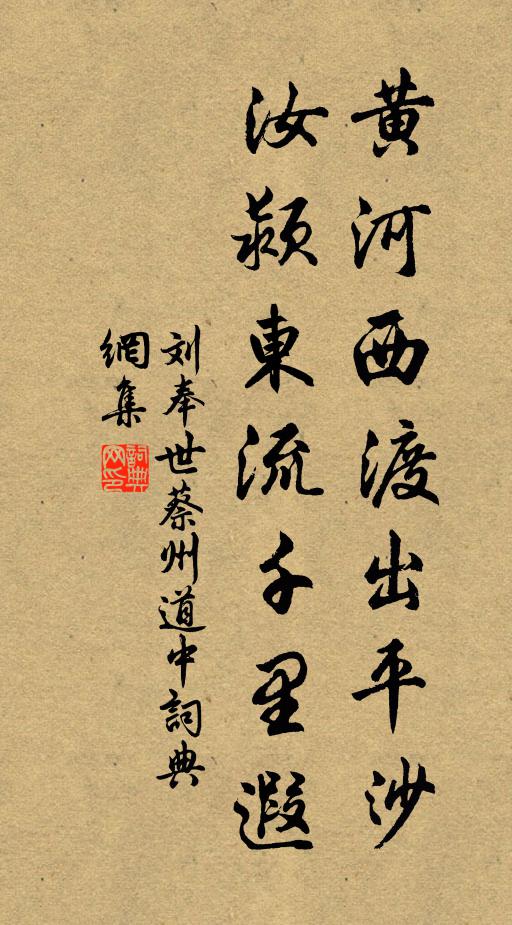 黄河西渡出平沙
汝颍東流千里遐
刘奉世蔡州道中詞典
網集
詞典
网印